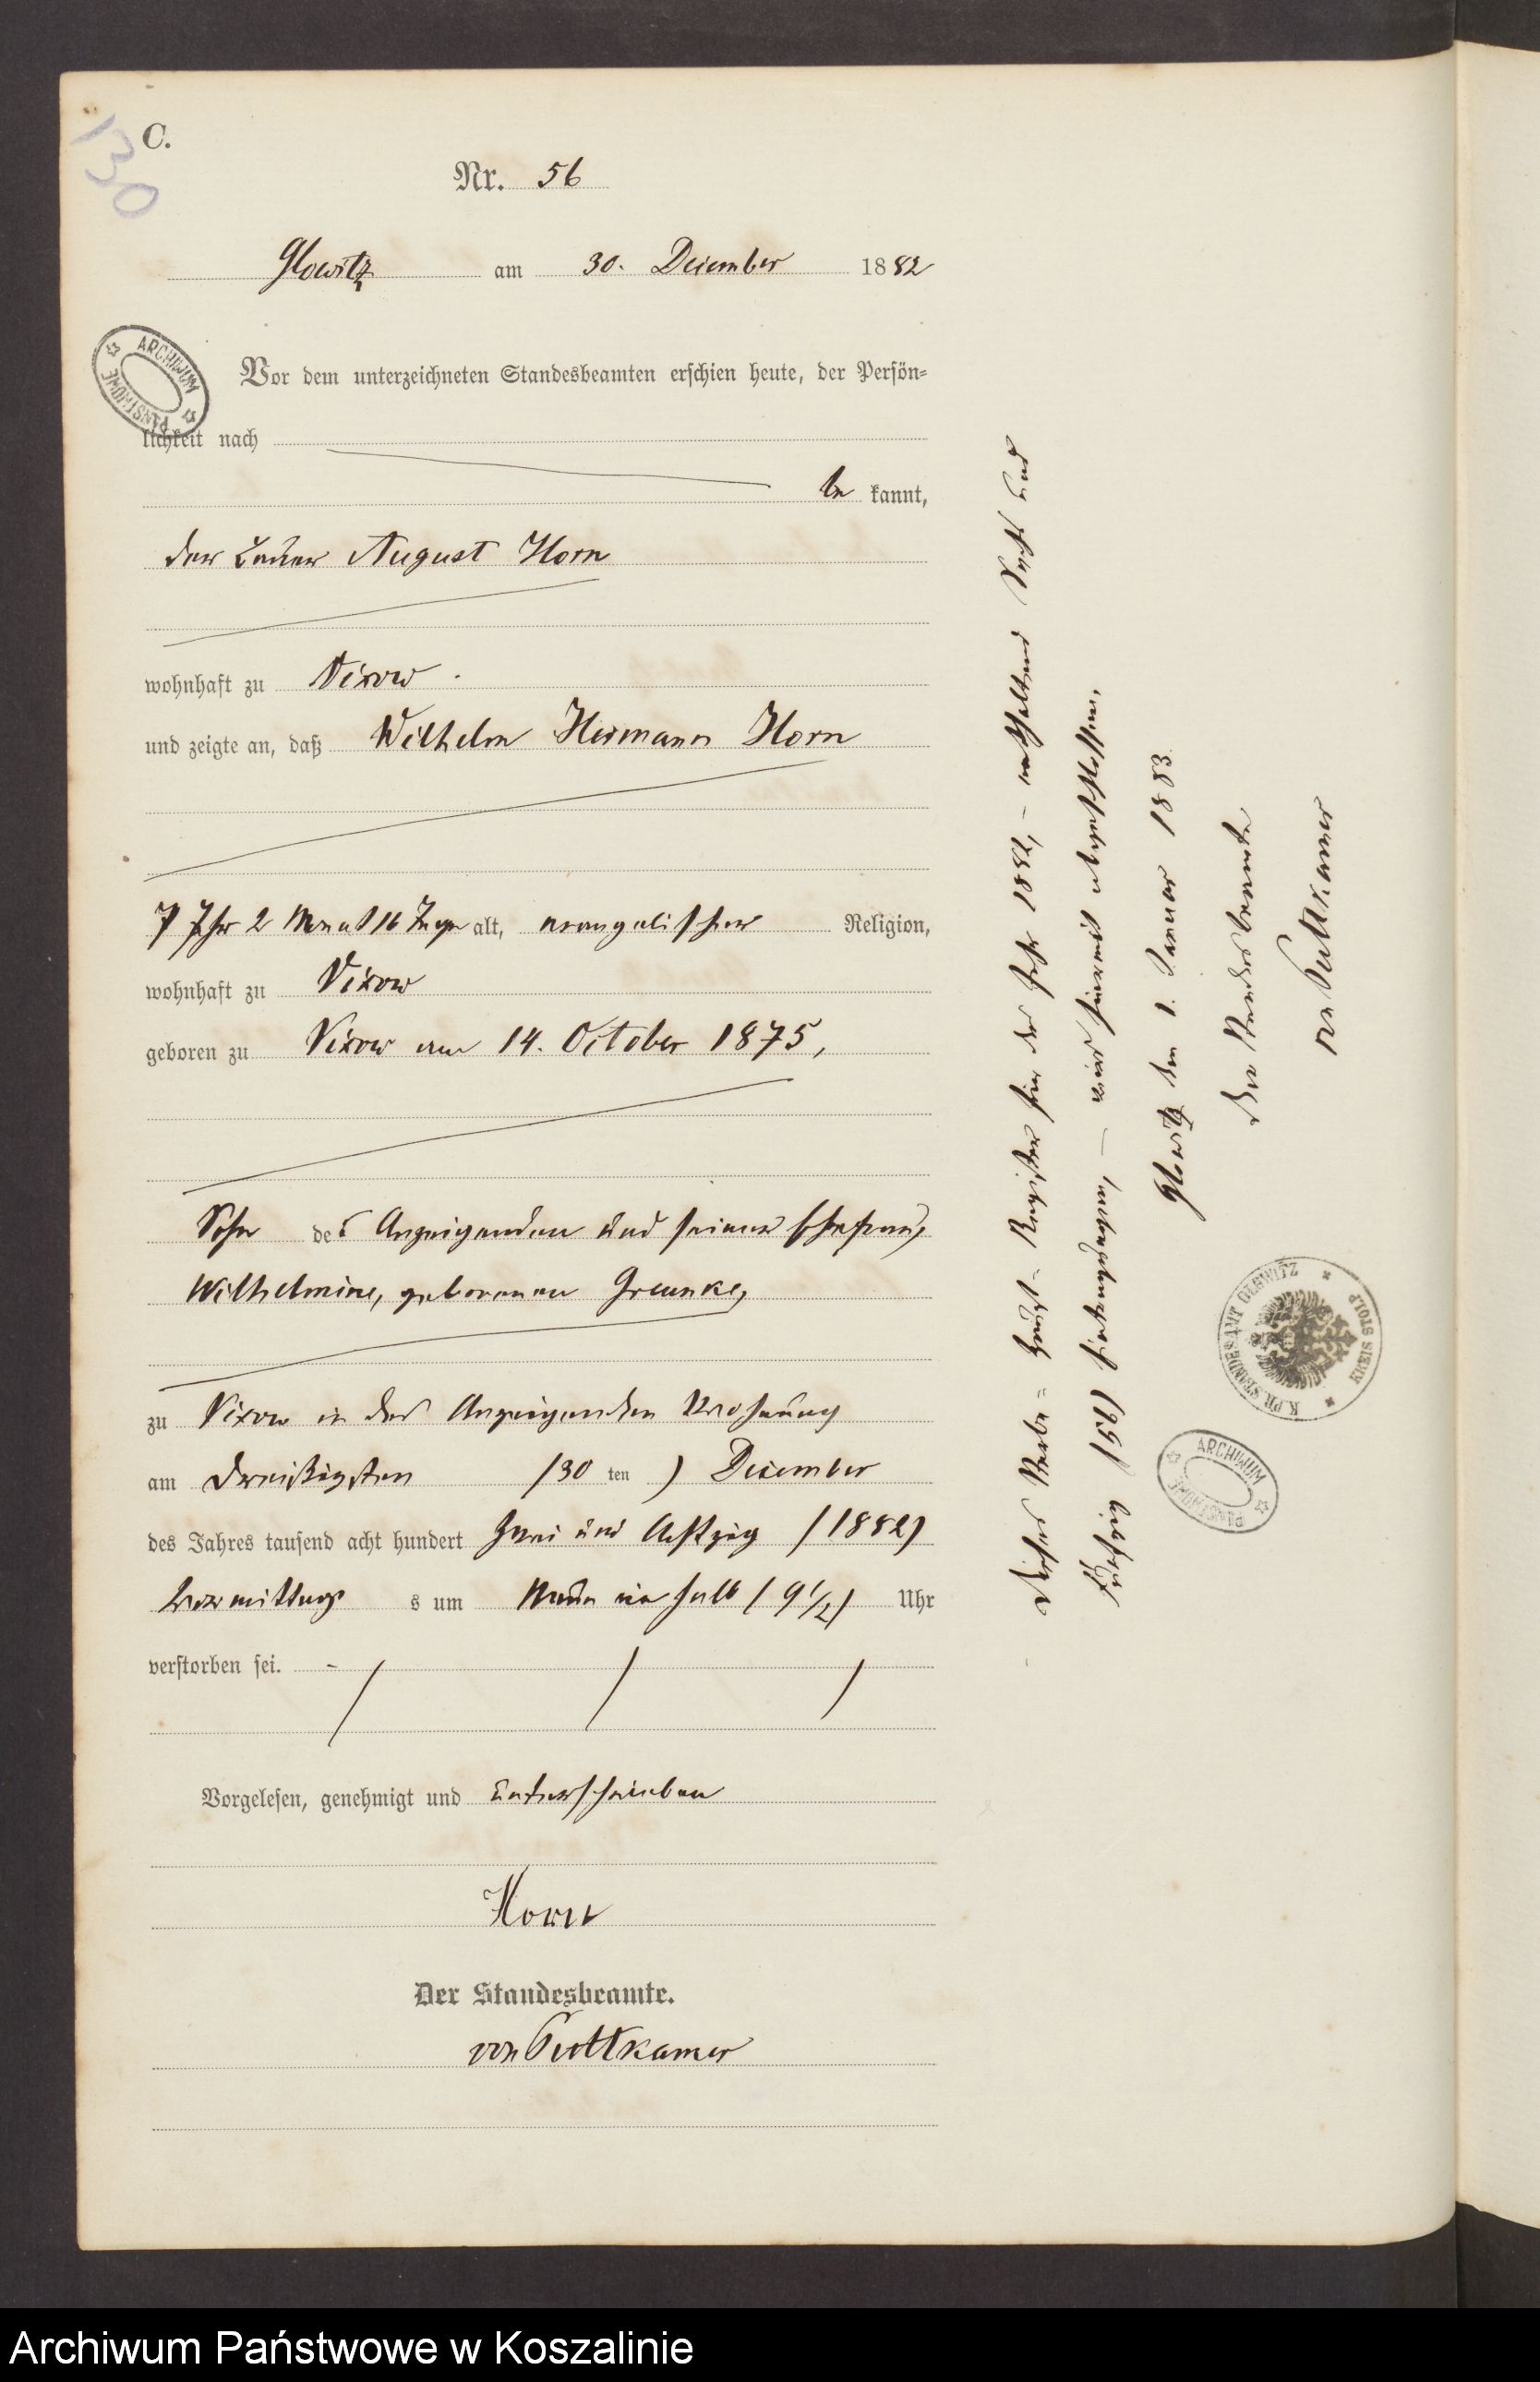 130
C.
Nr. 56
Glowitz am 30. December 1882
Vor dem unterzeichneten Standesbeamten erschien heute, der Persön-
lichkeit nach
be kannt,
der Bauer August Horn
wohnhaft zu Vixow.
und zeigte an, daß Wilhelm Hermann Horn
7 Jahr 2 Monat 16 Tage alt, evangelischer Religion,
wohnhaft zu Vixow
geboren zu Vixow am 14. October 1875,
Sohn des Anzeigenden und seiner Ehefrau,
Wilhelmine, geborenen Greunke,
zu Vixow in des Anzeigenden Wohnung
am dreißigsten (30 ten) December
des Jahres tausend acht hundert zwei und Achtzig (1882)
Vormittags um Neun ein halb (9 1/2) Uhr
verstorben sei.
Vorgelesen, genehmigt und unterschrieben
Horn
Der Standesbeamte.
von Puttkamer
Dieses Sterbe-Haupt-Register für das Jahr 1882, - enthaltend Sechs und
fünfzig (56) Eintragungen, - wird hiermit abgeschlossen.
Glowitz den 1. Januar 1883.
Der Standesbeamte
von Puttkamer
K. PR. STANDESAMT GLOWITZ KREIS STOLP
ARCHIWUM PAŃSTWOWE
ARCHIWUM PAŃSTWOWE
Archiwum Państwowe w Koszalinie